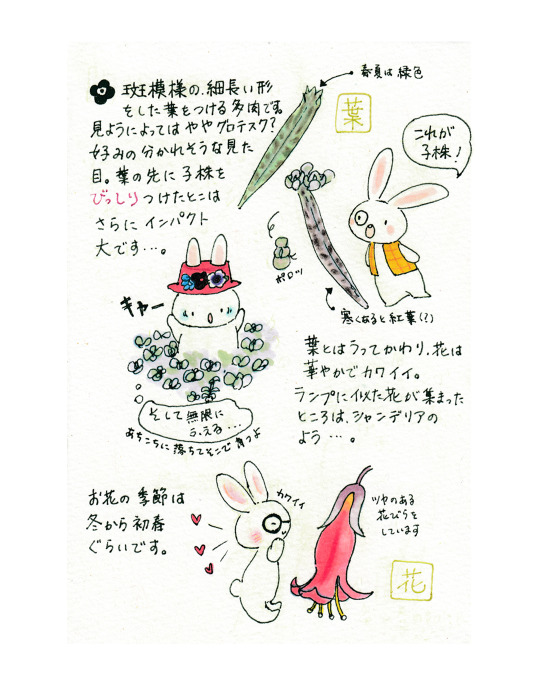 斑模様の、細長い形
をした葉をつける多肉です。
見ようによってはややグロテスク?
好みの分かれそうな見た
目。葉の先に子株を
びっしりつけたとこは
さらにインパクト
大です…。
春夏は緑色
葉
これが
子株!
ポロッ
寒くなると紅葉(?)
キャー
そして無限に
ふえる…
あちこちに落ちてそこで育つよ
葉とはうってかわり、花は
華やかでカワイイ。
ランプに似た花が集まった
ところは、シャンデリアの
よう…。
お花の季節は
冬から初春
ぐらいです。
カワイイ
ツヤのある
花びらを
しています
花